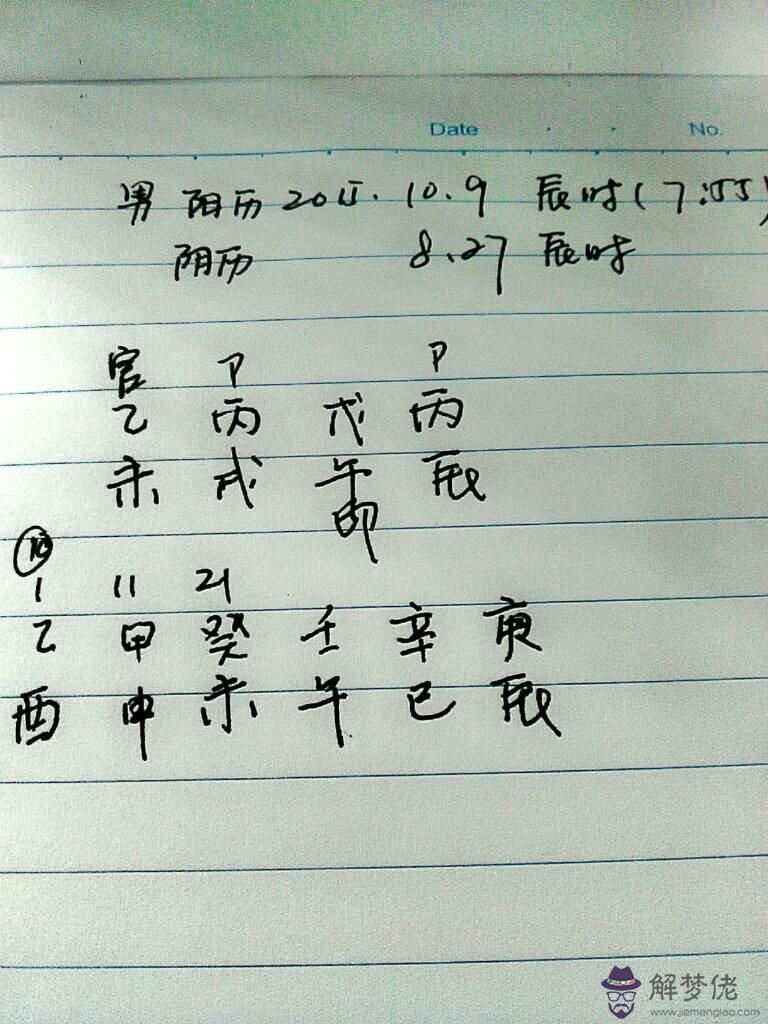 Date No.
男 阳历 2015. 10. 9 辰时(7:55)
阴历 8.27 辰时
官 P P
乙 丙 戊 丙
未 戌 午 辰
印
10
1 11 21
乙 甲 癸 壬 辛 庚
酉 申 未 午 巳 辰
解梦佬
www.jiemenglao.com